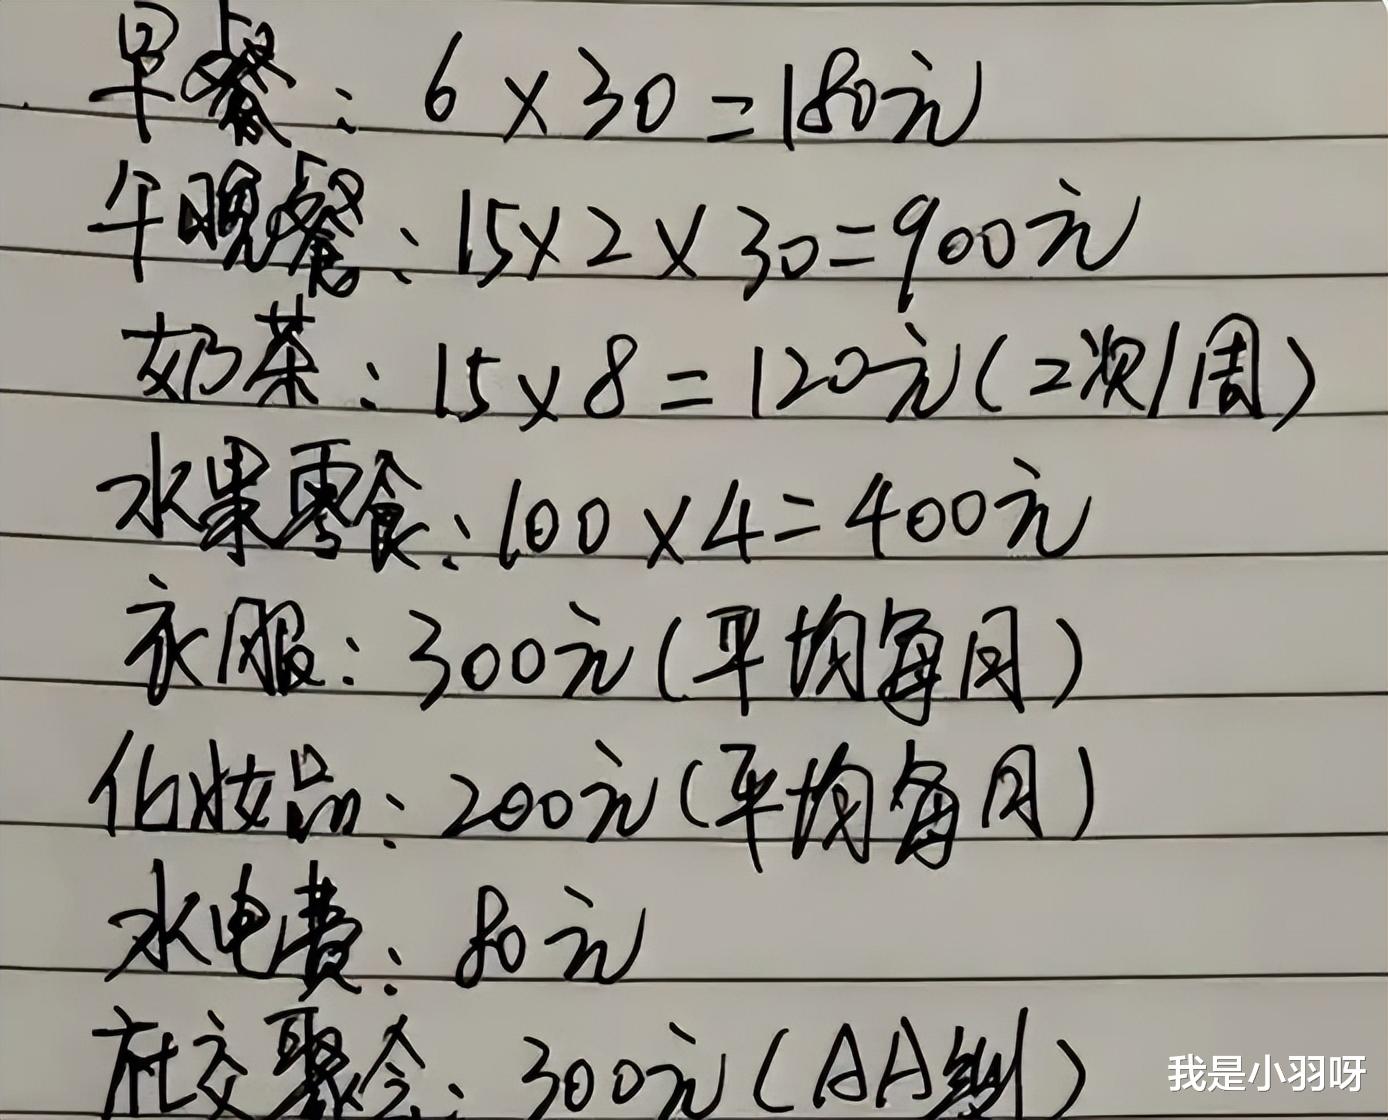 早餐：6×30=180元
午晚餐：15×2×30=900元
奶茶：15×8=120元(2次/周)
水果零食：100×4=400元
衣服：300元(平均每月)
化妆品：200元(平均每月)
水电费：80元
社交聚会：300元(AA制)
我是小羽呀